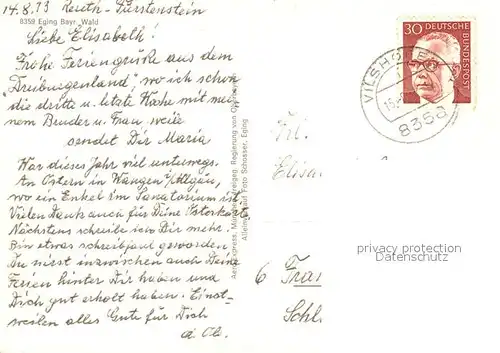 14.8.73 Reuth-Fürstenstein
8359 Eging Bayr. Wald
Liebe Elisabeth!
Frohe Feriengrüße aus dem
"Dreiburgenland", wo ich schon
die dritte u. letzte Woche mit mei-
nem Bruder u. Frau weile
sendet Dir Maria
War dieses Jahr viel unterwegs.
An Ostern in Wangen i/Allgäu,
wo ein Enkel im Sanatorium ist.
Vielen Dank auch für Deine Osterkarte.
Nächstens schreibe ich Dir mehr.
Bin etwas schreibfaul geworden
Du wirst inzwischen auch Deine
Ferien hinter Dir haben und
Dich gut erholt haben. Einst-
weilen alles Gute für Dich
Foto Schosser, Eging
30
DEUTSCHE
BUNDESPOST
VILSHOFEN
8358
Frl.
Elisa
6 Fran
Schl
privacy protection
(Datenschutz)